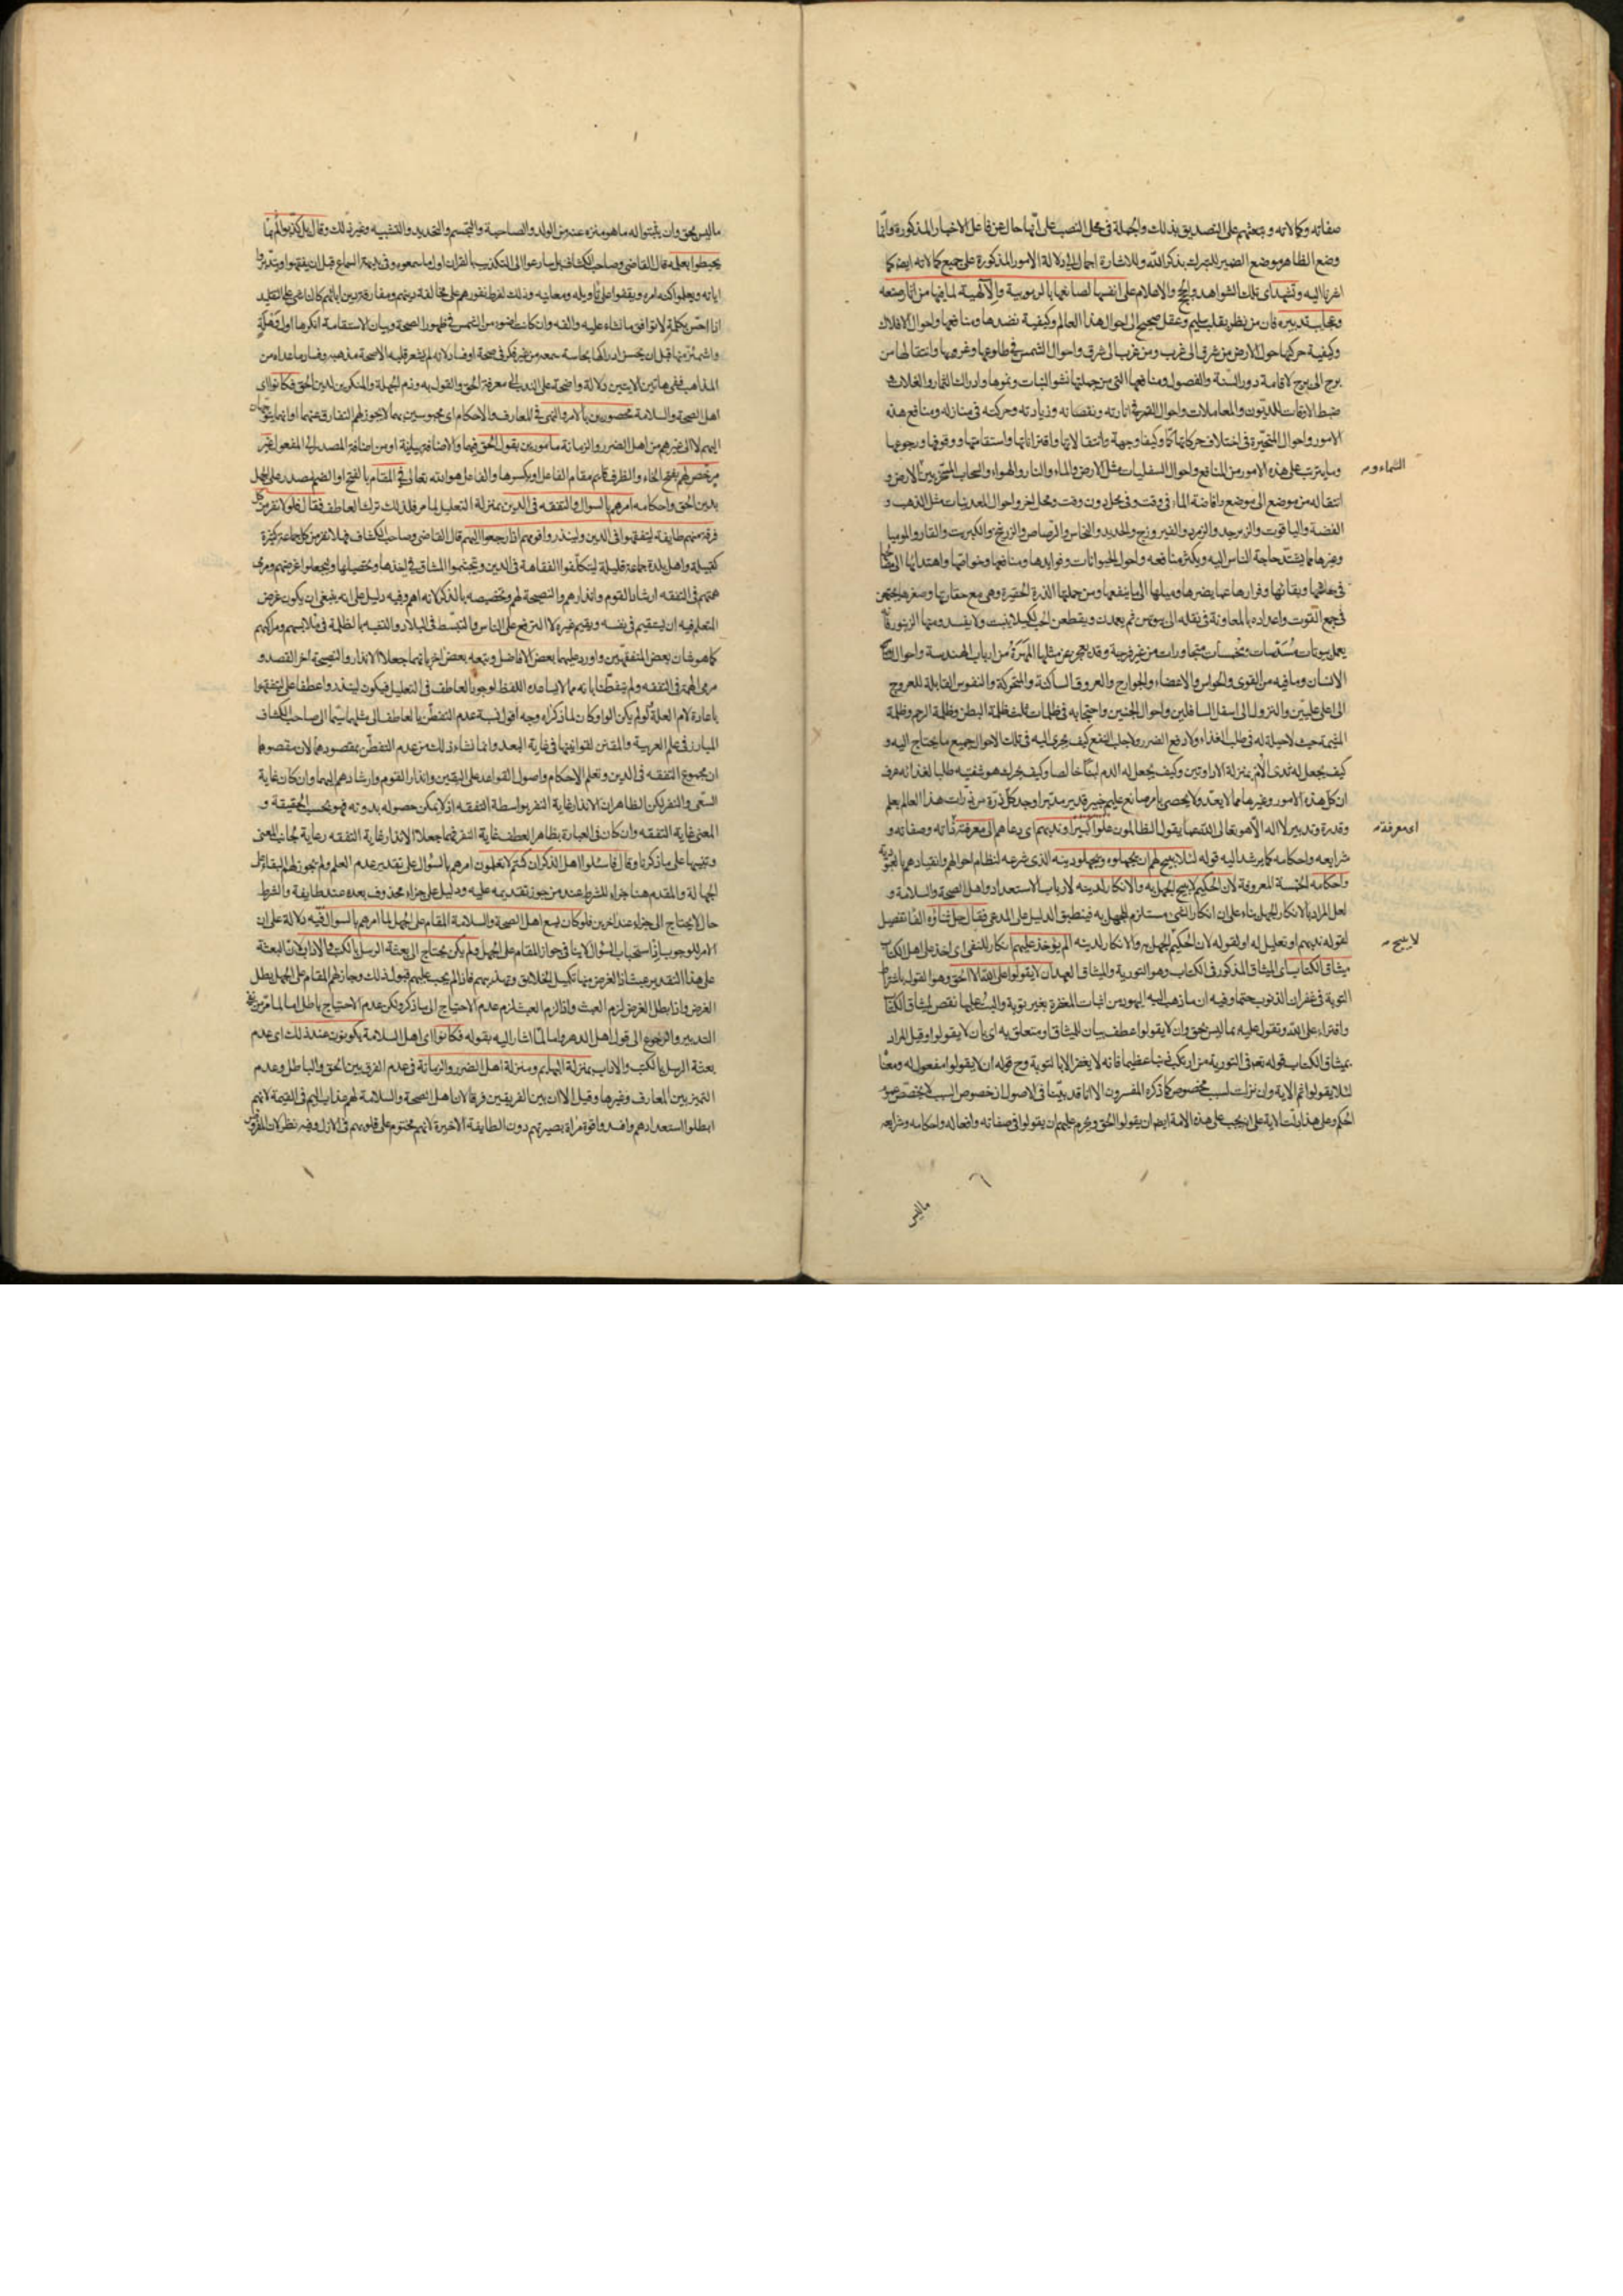 صفاته وكمالاته وبعثهم على التصديق بذلك والجملة في محل النصب على انها حال عن فاعل الاخبار المذكورة وانما
وضع الظاهر موضع الضمير للتبرك بذكر الله وللاشارة اجمالا الى دلالة الامور المذكورة على جميع كمالاته ايضا كما
اشرنا اليه وتشهد اي تلك الشواهد والحجج والاعلام على انفسها لصانعها بالربوبية والالهية لما فيها من اثار صنعه
وعجايب تدبيره فان من نظر بقلب سليم وعقل صحيح الى احوال هذا العالم وكيفية نضدها ومنافعها واحوال الافلاك
وكيفية حركتها حول الارض من شرق الى غرب ومن غرب الى شرق واحوال الشمس في طلوعها وغروبها وانتقالها من
برج الى برج لاقامة دور السنة والفصول ومنافعها التي من جملتها نشو النبات ونموها وادراك الثمار والغلات و
ضبط الاوقات للديون والمعاملات واحوال القمر في انارته ونقصانه وزيادته وحركته في منازله ومنافع هذه
الامور واحوال المتحيرة في اختلاف حركاتها كما وكيفا وجهة وانتقالاتها واقتراناتها واستقامتها ووقوفها ورجوعها
وما يترتب على هذه الامور من المنافع واحوال السفليات مثل الارض والماء والنار والهواء والسحاب المسخر بين الارض و
السماء و
انتقاله من موضع الى موضع وافاضة الماء في وقت وفي محل دون وقت ومحل اخر واحوال المعدنيات مثل الذهب و
الفضة والياقوت والزبرجد والزمرد والفيروزج والحديد والنحاس والرصاص والزرنيخ والكبريت والقار والموميا
وغيرها مما يشتد حاجة الناس اليه ويكثر منافعه واحوال الحيوانات وفوايدها ومنافعها وخواصها واهتدائها الى
في معاشها وبقائها وفرارها عما يضرها وميلها الى ما ينفعها ومن جملتها الذرة الحقيرة وهي مع حقارتها وصغرها
في جمع القوت واعداده بالمعاونة في نقله الى بيوتهن ثم يعمدن ويقطعن الحب لكيلا ينبت ولا يفسد ومنها الزنبور فانه
يعمل بيوتات مسدسات ومخمسات متجاورات من غير فرجة وقد يعجز عن مثلها المهرة من ارباب الهندسة واحوال
الانسان وما فيه من القوى والحواس والاعضاء والجوارح والعروق الساكنة والمتحركة والنفوس القابلة للعروج
الى اعلى عليين والنزول الى اسفل السافلين واحوال الجنين واحتجابه في ظلمات ثلث ظلمة البطن وظلمة الرحم وظلمة
المشيمة حيث لا حيلة له في طلب الغذاء ولا دفع الضرر ولا جلب النفع كيف يجري اليه في تلك الاحوال جميع ما يحتاج اليه و
كيف يجعل له ثدي الام بمنزلة الاداوتين وكيف يجعل له الدم لبنا خالصا وكيف يحرك هو شفتيه طلبا لغذائه عرف
ان كل هذه الامور وغيرها مما لا يعد ولا يحصى بامر صانع عليم خبير قدير مدبر اوجد كل ذرة من ذرات هذا العالم بعلم
وقدرة وتدبير لا اله الا هو تعالى الله عما يقول الظالمون علوا كبيرا وندبهم اي دعاهم الى معرفته ذاته وصفاته و
اي معرفة
شرايعه واحكامه كما يرشد اليه قوله لئلا يبيح لهم ان يجهلوه ويجهلوا دينه الذي شرعه لنظام احوالهم وانقيادهم بالعبودية
واحكامه الخمسة المعروفة لان الحكيم لا يبيح الجهل به والانكار لدينه لارباب الاستعداد واهل الصحة والسلامة و
لعل المراد بالانكار الجهل بناء على ان انكار الشيء مستلزم للجهل به فينطبق الدليل على المدعى فقال جل ثناؤه الفا تفصيل
لقوله ندبهم او تعليل له او لقوله لان الحكيم الجهل به والانكار لدينه الم يؤخذ عليهم انكار للنفي اي اخذ على اهل الكتاب
لا يبيح
ميثاق الكتاب اي الميثاق المذكور في الكتاب وهو التورية والميثاق العهد ان لا يقولوا على الله الا الحق وهو القول باشتراط
التوبة في غفران الذنوب حتما وفيه ان ما ذهب اليه اليهود من اثبات المغفرة بغير توبة والبت عليها نقض لميثاق الكتاب
وافتراء على الله وتقول عليه بما ليس بحق وان لا يقولوا عطف بيان للميثاق او متعلق به اي بان لا يقولوا وقيل المراد
بميثاق الكتاب قوله تعالى في التورية من ارتكب ذنبا عظيما فانه لا يغفر الا بالتوبة وح قوله ان لا يقولوا مفعول له ومعناه
لئلا يقولوا ثم الاية وان نزلت لسبب مخصوص كما ذكره المفسرون الا انا قد بينا في الاصول ان خصوص السبب لا يخصص عموم
الحكم وعلى هذا دلت الاية على انه يجب على هذه الامة ايضا ان يقولوا الحق ويحرم عليهم ان يقولوا في صفاته وافعاله واحكامه وشرايعه
ما ليس
ما ليس بحق وان يثبتوا له ما هو منزه عنه من الولد والصاحبة والتجسم والتحديد والتشبيه وغير ذلك وقال بل كذبوا بما لم
يحيطوا بعلمه قال القاضي وصاحب الكشاف بل سارعوا الى التكذيب بالقران اول ما سمعوه وفي بديهة السماع قبل ان يفقهوا ويتدبروا
اياته ويعلموا كنه امره ويقفوا على تاويله ومعانيه وذلك لفرط نفورهم على مخالفة دينهم ومفارقة دين ابائهم كالناشي على التقليد
اذا احس بكلمة لا توافق ما نشاء عليه والفه وان كانت اضوء من الشمس في ظهور الصحة وبيان الاستقامة انكرها اول وهلة
واشمئز منها قبل ان يحسن ادراكها بحاسة سمعه من غير فكر في صحة او فساد لانه لم يشعر قلبه الا صحة مذهبه وفساد ما عداه من
المذاهب ففي هاتين الايتين دلالة واضحة على الندب الى معرفة الحق والقول به وذم الجهلة والمنكرين لدين الحق فكانوا اي
اهل الصحة والسلامة محصورين بالامر والنهي في المعارف والاحكام اي محبوسين بهما لا يجوز لهم التفارق عنهما
اليهم لا الى غيرهم من اهل الضرر والزمانة مامورين بقول الحق فيها والاضافة بيانية او من اضافة المصدر الى المفعول غير
مرخص لهم بفتح الخاء والظرف قايم مقام الفاعل او بكسرها والفاعل هو الله تعالى في المقام بالفتح او الضم مصدر على الجهل
بدين الحق واحكامه امرهم بالسوال والتفقه في الدين بمنزلة التعليل لما مر فلذلك ترك العاطف فقال فلولا نفر من كل
فرقة منهم طايفة ليتفقهوا في الدين ولينذروا قومهم اذا رجعوا اليهم قال القاضي وصاحب الكشاف فهلا نفر من كل جماعة كثيرة
كقبيلة واهل بلدة جماعة قليلة ليتكلفوا الفقاهة في الدين ويتجشموا المشاق في اخذها وتحصيلها وليجعلوا غرضهم ومرمى
همتهم في التفقه ارشاد القوم وانذارهم والنصيحة لهم وتخصيصه بالذكر لانه اهم وفيه دليل على انه ينبغي ان يكون غرض
المتعلم فيه ان يستقيم في نفسه ويقيم غيره لا الترفع على الناس والتبسط في البلاد والتشبه بالظلمة في ملابسهم ومراكبهم
كما هو شان بعض المتفقهين واورد عليهما بعض الافاضل وتبعه بعض اخر بانهما جعلا الانذار والنصيحة اخر القصد و
مرمى الهمة في التفقه ولم يتفطنا بانه مما لا يساعده اللفظ لوجوب العاطف في التعليل فيكون لينذروا عطفا على ليتفقهوا
باعادة لام العلة ولو لم يكن الواو كان لما ذكراه وجه اقول نسبة عدم التفطن بالعاطف الى مثلهما سيما الى صاحب الكشاف
المبارز في علم العربية والمقنن لقوانينها في غاية البعد وانما نشاء ذلك من عدم التفطن بمقصودهما لان مقصودهما
ان مجموع التفقه في الدين وتعلم الاحكام واصول القواعد على اليقين وانذار القوم وارشادهم اليهما وان كان غاية
السعي والنفر لكن الظاهر ان الانذار غاية النفر بواسطة التفقه اذ لا يمكن حصوله بدونه فهو بحسب الحقيقة و
المعنى غاية التفقه وان كان في العبارة بظاهر العطف غاية النفر فهما جعلا الانذار غاية التفقه رعاية لجانب المعنى
وتنبيها على ما ذكرنا وقال فاسئلوا اهل الذكر ان كنتم لا تعلمون امرهم بالسؤال على تقدير عدم العلم ولم يجوز لهم البقاء على
الجهالة والمقدم هنا جزاء للشرط عند من جوز تقديمه عليه ودليل على جزاء محذوف بعده عند طايفة والشرط
حال لا يحتاج الى جزاء عند اخرين فلو كان يسع اهل الصحة والسلامة المقام على الجهل لما امرهم بالسوال فيه دلالة على ان
الامر للوجوب اذ استحباب السؤال لا ينافي جواز المقام على الجهل ولم يكن يحتاج الى بعثة الرسل بالكتب والاداب لان البعثة
على هذا التقدير عبث اذ الغرض منها تكميل الخلايق وتهذيبهم فاذا لم يجب عليهم قبول ذلك وجاز لهم المقام على الجهل بطل
الغرض واذا بطل الغرض لزم العبث واذا لزم العبث لزم عدم الاحتياج الى ما ذكر ولكن عدم الاحتياج باطل
التدبير والرجوع الى قول اهل الدهر واما لما اشار اليه بقوله فكانوا اي اهل السلامة يكونون عند ذلك اي عدم
بعثة الرسل بالكتب والاداب بمنزلة البهايم ومنزلة اهل الضرر والزمانة في عدم الفرق بين الحق والباطل وعدم
التميز بين المعارف وغيرها وقيل الا ان بين الفريقين فرقا لان اهل الصحة والسلامة لهم عذاب اليم في القيمة لانهم
ابطلوا استعدادهم وافسدوا قوة مراة بصيرتهم دون الطايفة الاخيرة لانهم مختوم على قلوبهم في الازل وفيه نظر لان المفروض